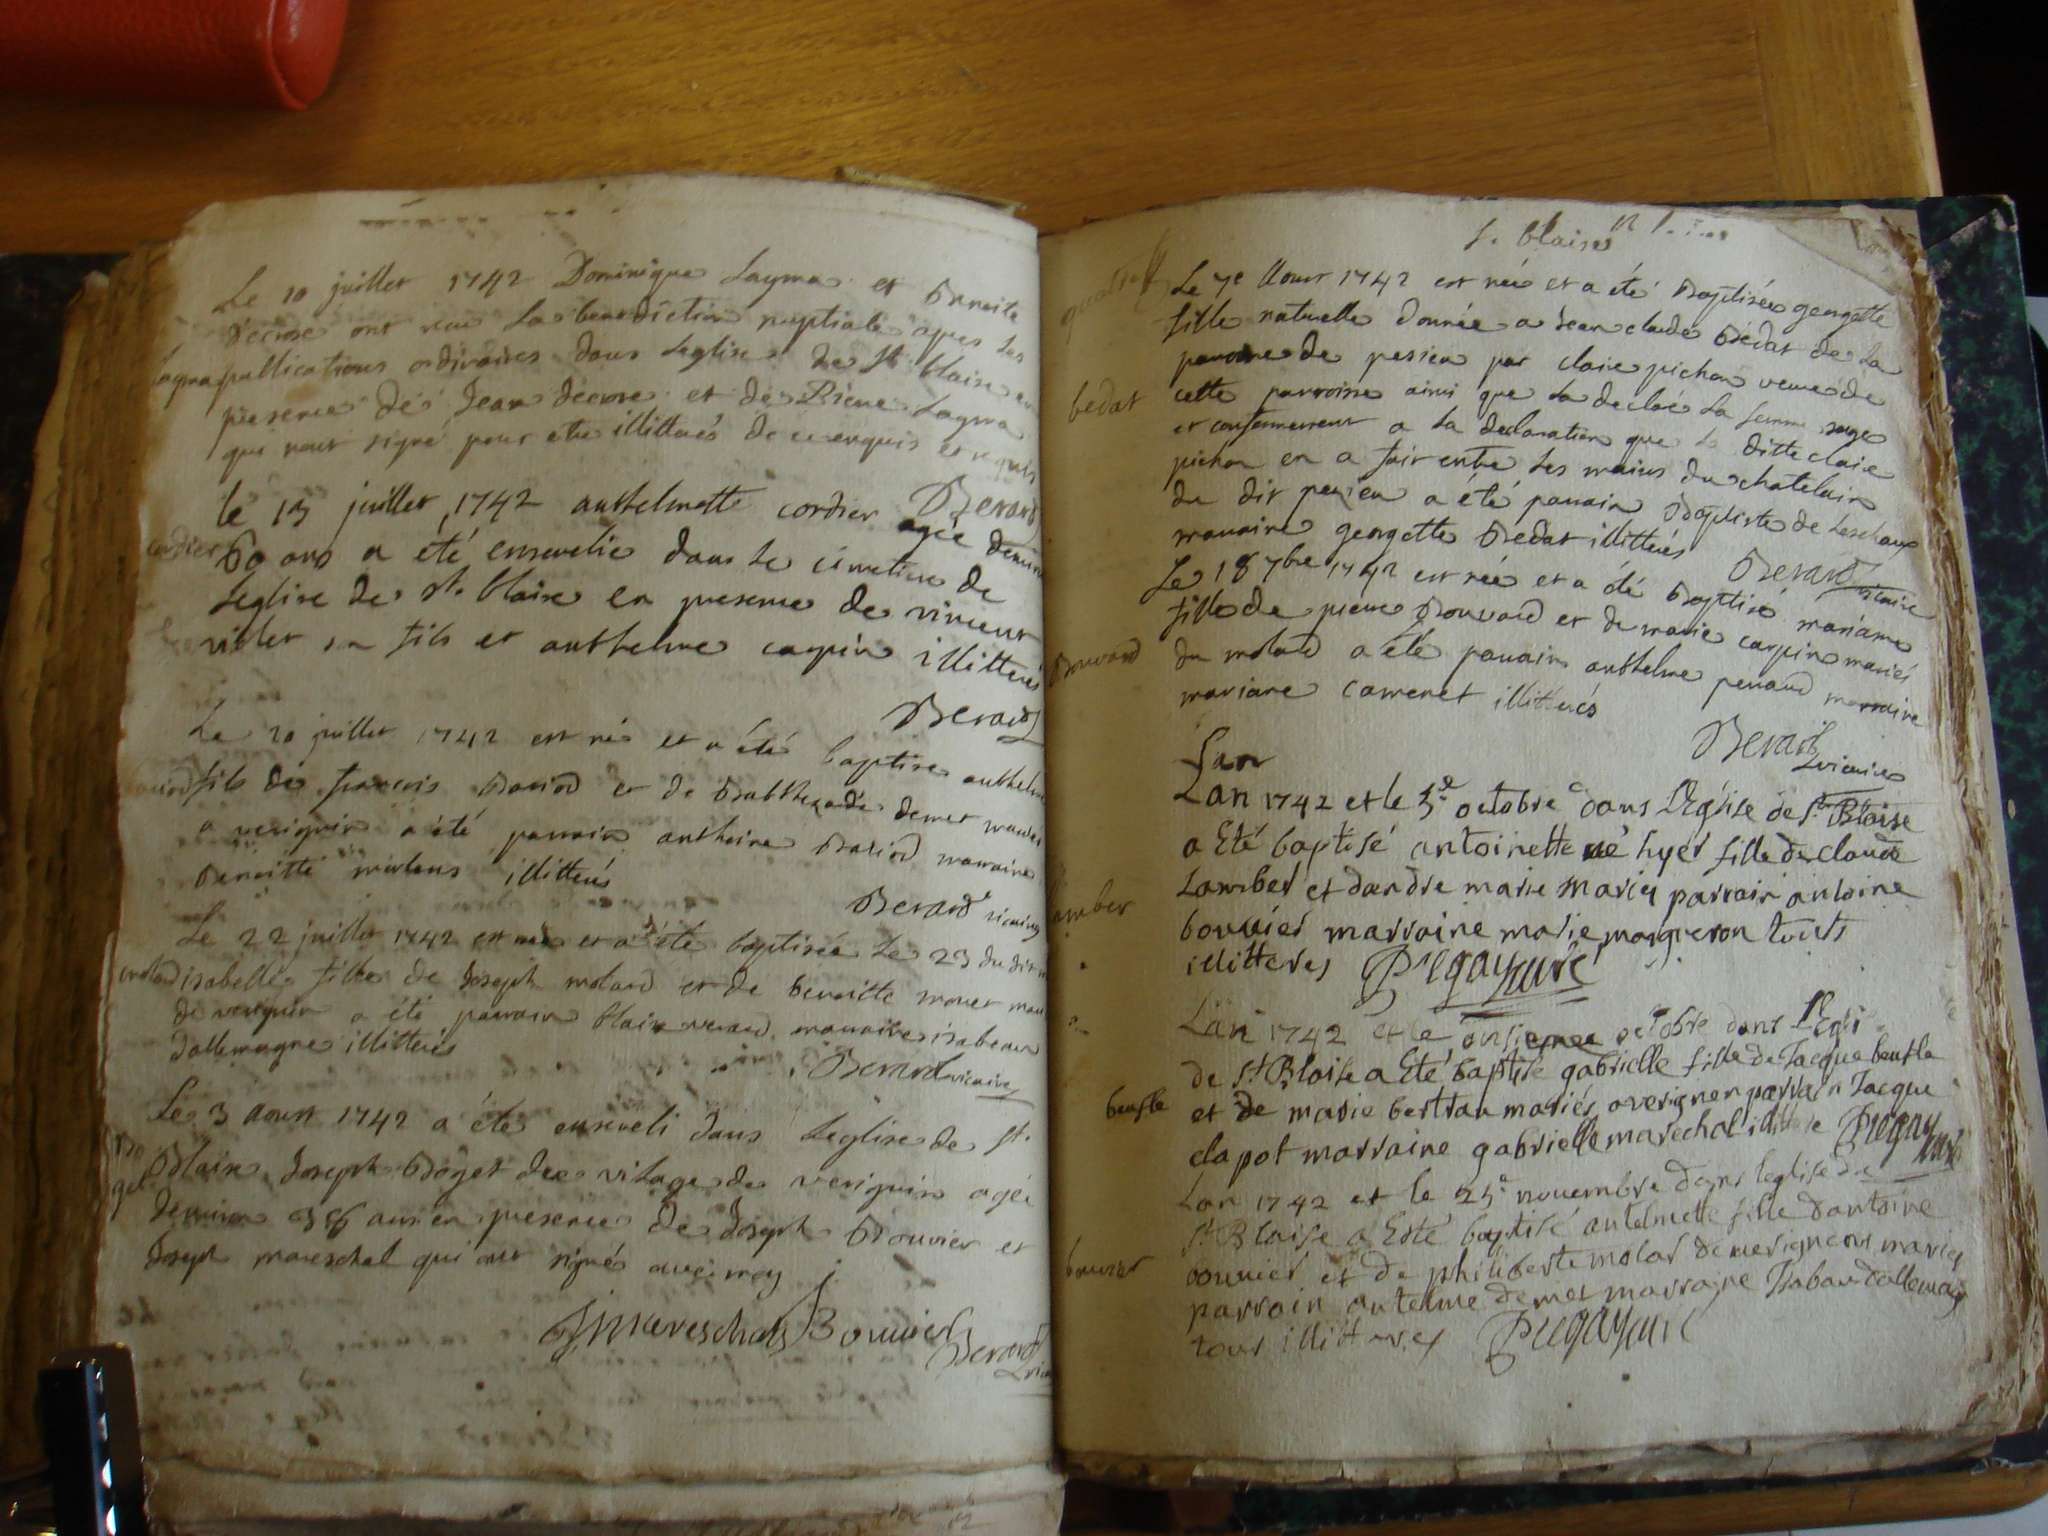 Le 10 juillet 1742 Dominique Layma et Benoite
Decrose ont recu la benediction nuptiale apres les
Layma publications ordinaires dans Leglise de st blaise en
presence de Jean decrose et de Pierre Layma
qui nont signé pour etre illitterés de ce enquis et requis
Berard
le 13 juillet 1742 anthelmette cordier agée denviron
cordier 60 ans a été ensevelie dans le cimetiere de
Leglise de st. blaise en presence de vincent
violet son fils et anthelme carpin illitterés
Berard
Le 20 juillet 1742 est né et a été baptise anthelme
fils de francois Bariod et de Balthezarde demet mariés
a verignin a été parrain anthoine Bariod marraine
Benoitte illitterés
Berard vicaire
Le 22 juillet 1742 est née et a été baptisée Le 23 du dit
molard isabelle fille de Joseph molard et de benoitte monet
de verignin a été parrain blaise marraine isabeau
dallemagne illitterés
Berard vicaire
Le 3 aoust 1742 a été enseveli dans Leglise de st.
Bo Blaise Joseph Boget du vilage de verignin agé
get denviron 36 ans en presence de Joseph Bouvier et
Joseph mareschal qui ont signé avec moy
J mareschal J Bouvier
Berard
st. blaise
Le 7e Aoust 1742 est née et a été Baptisée georgette
fille naturelle donnée a Jean claude Bédat de La
paroisse de pesieu par claire pichon veuve de
bedat cette parroisse ainsi que La declaré La femme sage
et conformement a La declaration que La ditte claire
pichon en a fait entre Les mains du chatelain
du dit pesieu a été parrain Baptiste de Leschaux
marraine georgette Bedat illitterés
Berard vicaire
Le 18 7bre 1742 est née et a été Baptisé mariane
fille de pierre Bouvard et de marie carpin mariés
Bouvard du molard a été parrain anthelme penaud marraine
mariane carrenet illitterés
Berard
vicaire
Lan
Lan 1742 et le 3e octobre dans LEglise de st Blaise
a Eté baptisé antoinette né hyer fille de claude
Lamber Lamber et dandre marie mariey parrain antoine
bouvier marraine marie morgneron touts
illitteres Pugay curé
Lan 1742 et le onsieme octobre dans LEglise
de st Blaise a Eté baptisé gabrielle fille de Jacque beufle
beufle et de marie bertrau mariés a verignen parrain Jacque
clapot marraine gabrielle marechal illittere Pugay
curé
Lan 1742 et le 25e novembre dans leglise de
st Blaise a Esté baptisé antelmette fille dantoine
bouvier bouvier et de philiberte molar de verigneon mariey
parrain antelme demet marraine Isabau dallemag
tous illitterey Pugay curé